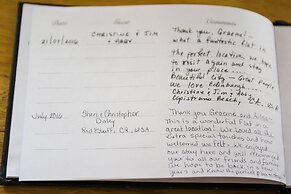 Date Guest Comments
21/05/2016 CHRISTINE & JIM
& ABBY
Thank you, Graeme!
what a fantastic flat in
the perfect location, we hope
to visit again and stay
in your place...
Beautiful city - Great People
we love Edinburgh...
Christine & Jim & Abby
Capistrano Beach, CA. USA
July 2016 Sheri & Christopher
Daley
Red Bluff, CA, USA
Thank you Graeme and
This is a wonderful flat in a
great location! We loved all the
extra special touches and
welcomed we felt. We enjoyed
our stay here and will recommend
you to all our friends and family
We hope to be back in a few
years and know the perfect place to